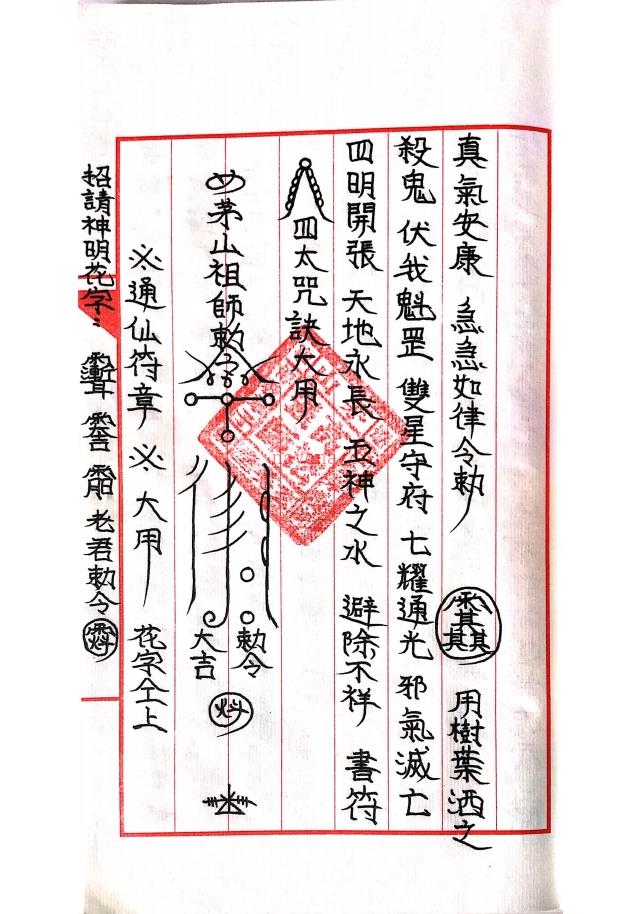 真氣安康 急急如律令勅 用樹葉洒之
殺鬼 伏我魁罡 雙星守府 七耀通光 邪氣滅亡
四明開張 天地永長 五神之水 避除不祥 書符
四太咒訣大用
茅山祖師勅 勅令 大吉
※通仙符章※大用 花字仝上
招請神明花字： 老君勅令